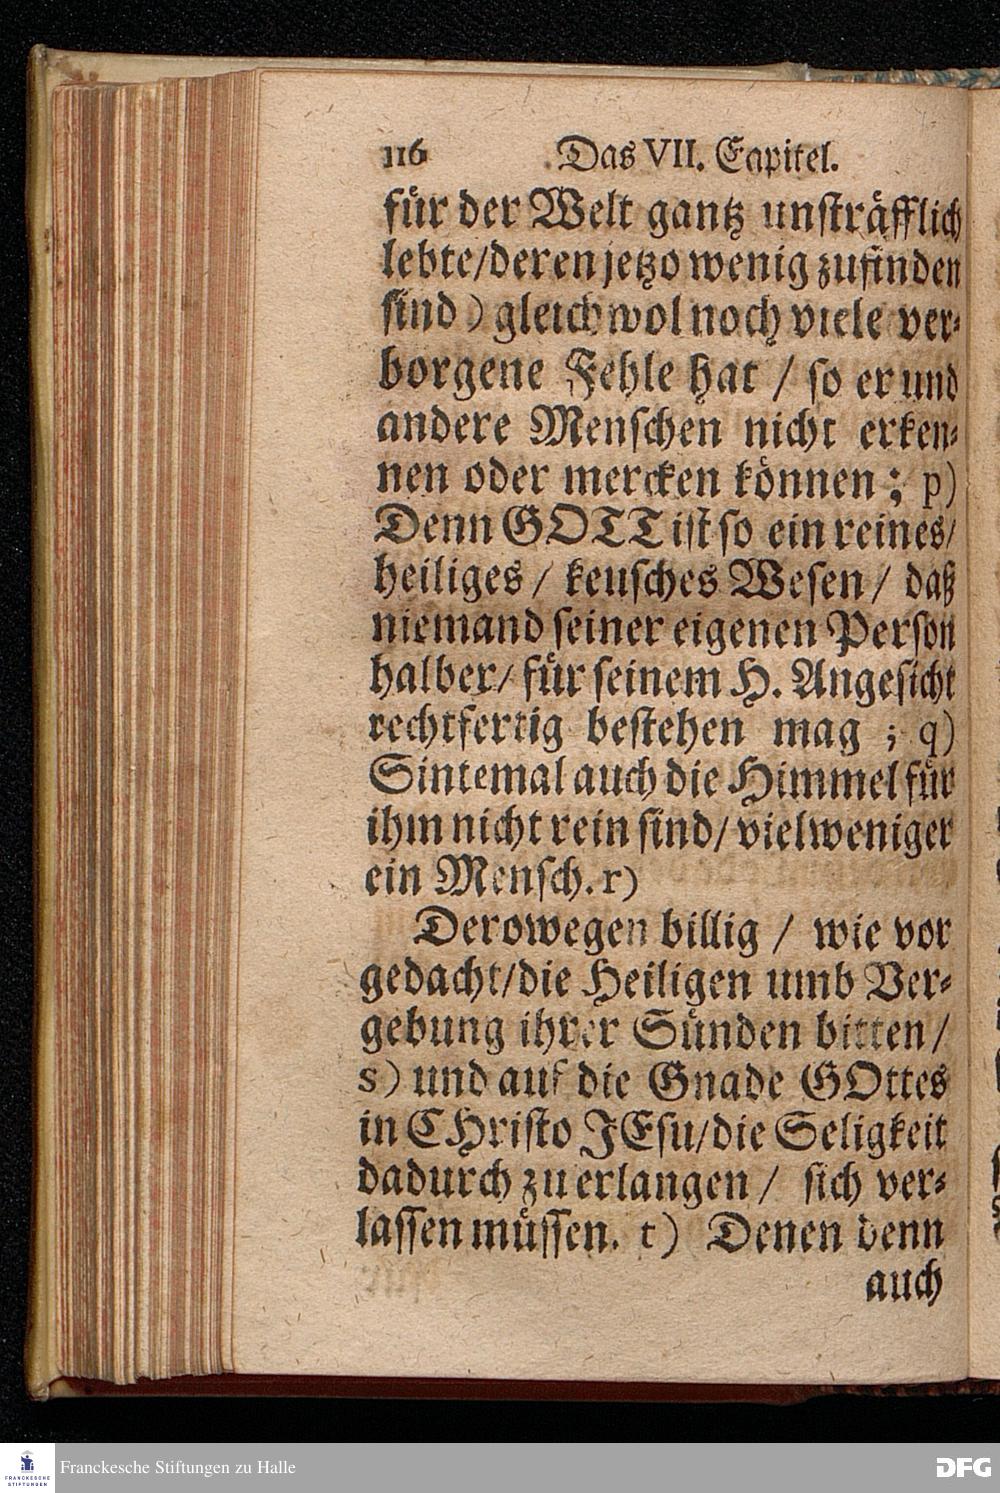 116 Das VII. Capitel.
für der Welt gantz unsträfflich
lebte/deren jetzo wenig zufinden
sind) gleichwol noch viele ver-
borgene Fehle hat / so er und
andere Menschen nicht erken-
nen oder mercken können; p)
Denn GOTT ist so ein reines/
heiliges / keusches Wesen / daß
niemand seiner eigenen Person
halber/ für seinem H. Angesicht
rechtfertig bestehen mag; q)
Sintemal auch die Himmel für
ihm nicht rein sind/ vielweniger
ein Mensch. r)
Derowegen billig / wie vor
gedacht/die Heiligen umb Ver-
gebung ihrer Sünden bitten/
s) und auf die Gnade GOttes
in CHristo JEsu/die Seligkeit
dadurch zu erlangen / sich ver-
lassen müssen. t) Denen denn
auch
FRANCKESCHE
STIFTUNGEN
Franckesche Stiftungen zu Halle
DFG